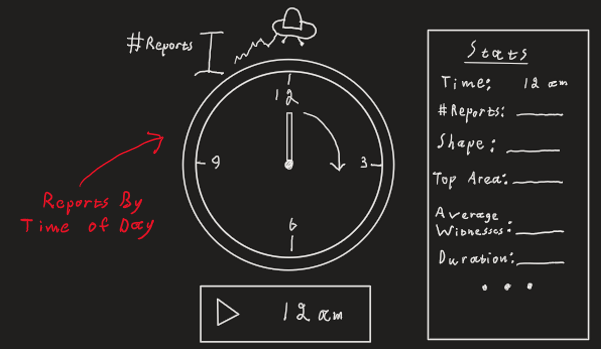 #Reports
12
9
3
6
Reports By
Time of Day
12 am
Stats
Time: 12 am
#Reports:
Shape:
Top Area:
Average
Witnesses:
Duration:
...